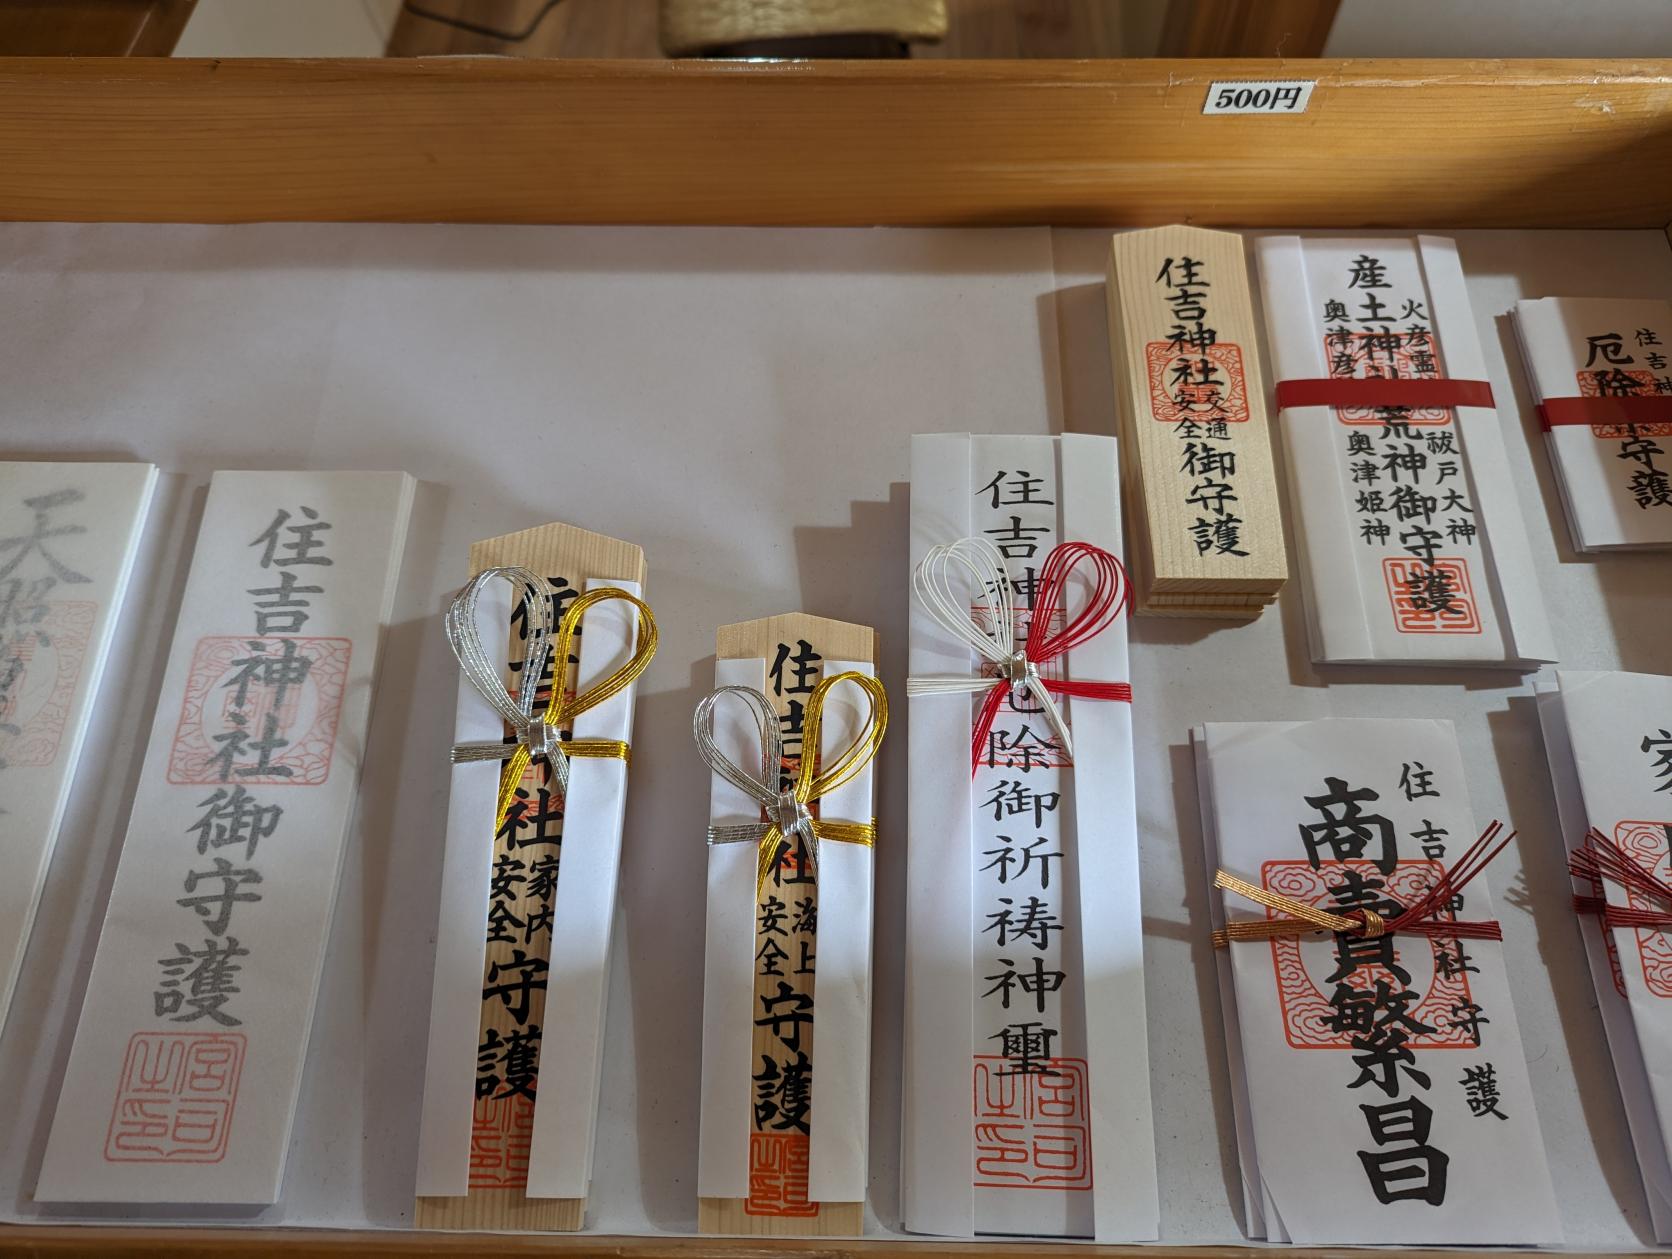 500円
天照
住吉神社御守護
宮司之印
住吉神社
家内安全
守護
住吉神社
海上安全
守護
住吉神社厄除御祈祷神璽
宮司之印
住吉神社
交通安全
御守護
産土神社荒神御守護
火彦霊
奥津彦
祓戸大神
奥津姫神
住吉神
厄除
守護
住吉神社守護
商売繁昌